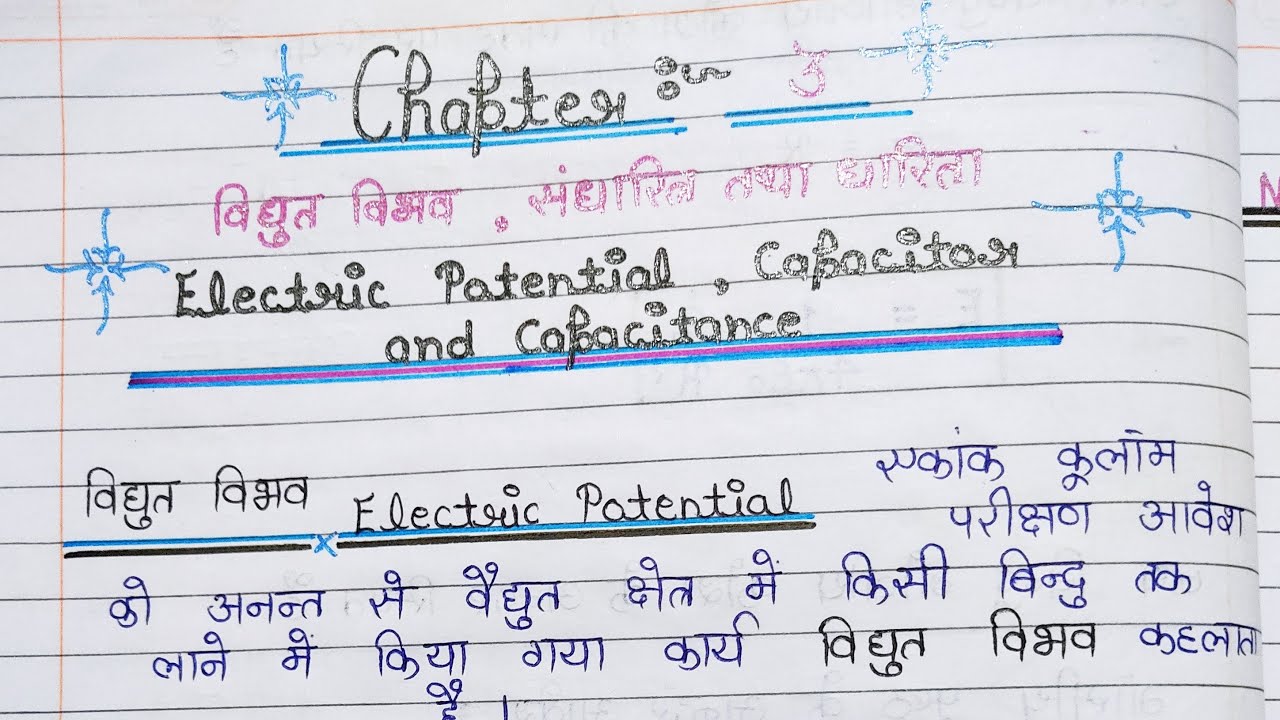 Chapter :~ 3
विद्युत विभव , संधारित्र तथा धारिता
Electric Potential , Capacitor
and Capacitance
विद्युत विभव × Electric Potential एकांक कूलॉम
परीक्षण आवेश
को अनन्त से वैद्युत क्षेत्र में किसी बिन्दु तक
लाने में किया गया कार्य विद्युत विभव कहलाता
है ।